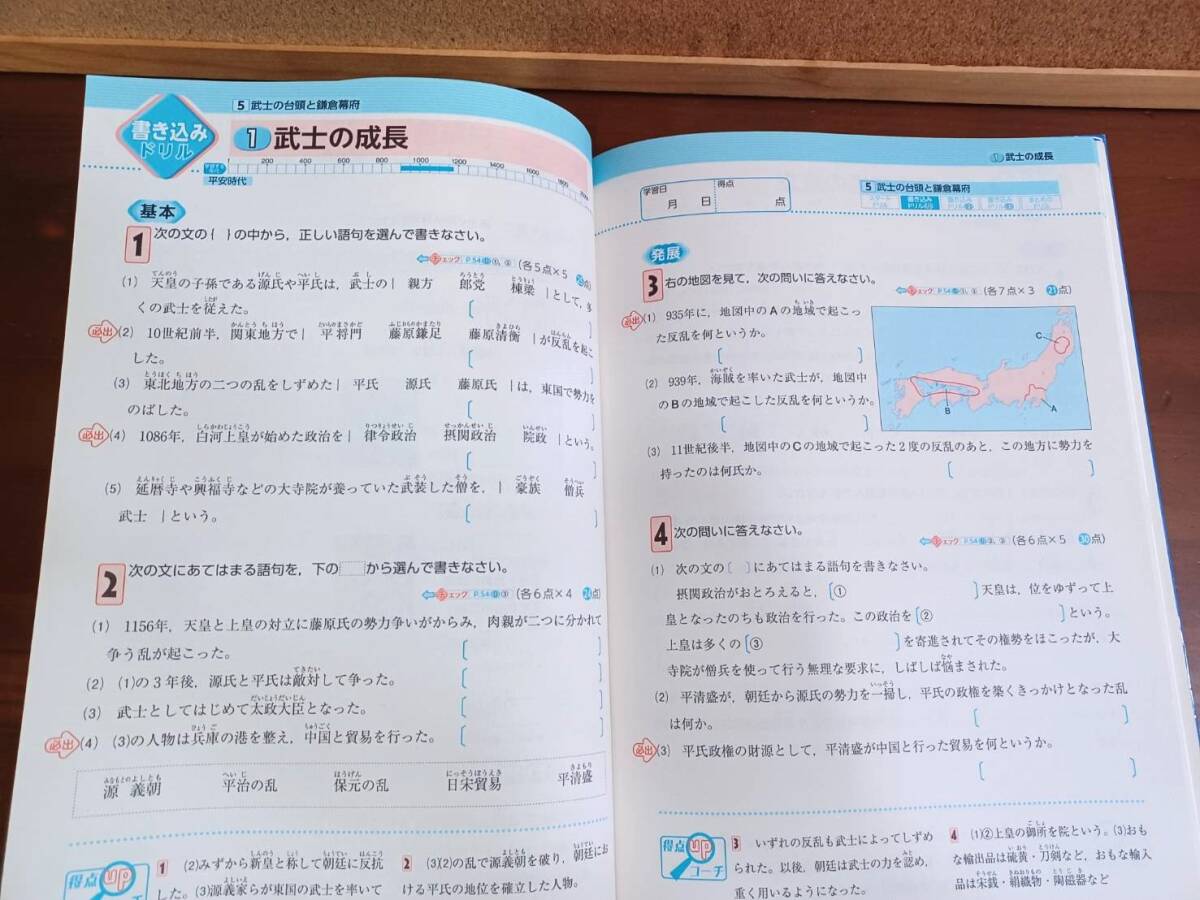 書き込み
ドリル
5 武士の台頭と鎌倉幕府
1 武士の成長
1 200 400 600 800 1000 1200 1400 1600 1800 2000
平安時代
基本
1 次の文の{ }の中から，正しい語句を選んで書きなさい。
チェック P.54 1 ①，② (各5点×5 25点)
(1) 天皇の子孫である源氏や平氏は，武士の{ 親方 郎党 棟梁 }として，多
くの武士を従えた。 [ ]
必出 (2) 10世紀前半，関東地方で{ 平将門 藤原鎌足 藤原清衡 }が反乱を起こ
した。 [ ]
(3) 東北地方の二つの乱をしずめた{ 平氏 源氏 藤原氏 }は，東国で勢力を
のばした。 [ ]
必出 (4) 1086年，白河上皇が始めた政治を{ 律令政治 摂関政治 院政 }という。
[ ]
(5) 延暦寺や興福寺などの大寺院が養っていた武装した僧を，{ 豪族 僧兵
武士 }という。 [ ]
2 次の文にあてはまる語句を，下の から選んで書きなさい。
チェック P.54 1 ③ (各6点×4 24点)
(1) 1156年，天皇と上皇の対立に藤原氏の勢力争いがからみ，肉親が二つに分かれて
争う乱が起こった。 [ ]
(2) (1)の3年後，源氏と平氏は敵対して争った。 [ ]
(3) 武士としてはじめて太政大臣となった。 [ ]
必出 (4) (3)の人物は兵庫の港を整え，中国と貿易を行った。 [ ]
源義朝 平治の乱 保元の乱 日宋貿易 平清盛
得点UP
コーチ
1 (2)みずから新皇と称して朝廷に反抗
した。(3)源義家らが東国の武士を率いて
2 (3)(2)の乱で源義朝を破り，朝廷にお
ける平氏の地位を確立した人物。
① 武士の成長
学習日 月 日 得点 点
5 武士の台頭と鎌倉幕府
スタート
ドリル
書き込み
ドリル①
書き込み
ドリル②
書き込み
ドリル③
まとめの
ドリル
発展
3 右の地図を見て，次の問いに答えなさい。
チェック P.54 1 ①，② (各7点×3 21点)
必出 (1) 935年に，地図中のAの地域で起こっ
た反乱を何というか。
[ ]
(2) 939年，海賊を率いた武士が，地図中
のBの地域で起こした反乱を何というか。
[ ]
C
B
A
(3) 11世紀後半，地図中のCの地域で起こった2度の反乱のあと，この地方に勢力を
持ったのは何氏か。 [ ]
4 次の問いに答えなさい。
チェック P.54 1 ②，③ (各6点×5 30点)
(1) 次の文の[ ]にあてはまる語句を書きなさい。
摂関政治がおとろえると，[① ]天皇は，位をゆずって上
皇となったのちも政治を行った。この政治を[② ]という。
上皇は多くの[③ ]を寄進されてその権勢をほこったが，大
寺院が僧兵を使って行う無理な要求に，しばしば悩まされた。
(2) 平清盛が，朝廷から源氏の勢力を一掃し，平氏の政権を築くきっかけとなった乱
は何か。 [ ]
必出 (3) 平氏政権の財源として，平清盛が中国と行った貿易を何というか。
[ ]
得点UP
コーチ
3 いずれの反乱も武士によってしずめ
られた。以後，朝廷は武士の力を認め，
重く用いるようになった。
4 (1)②上皇の御所を院という。(3)おも
な輸出品は硫黄・刀剣など，おもな輸入
品は宋銭・絹織物・陶磁器など